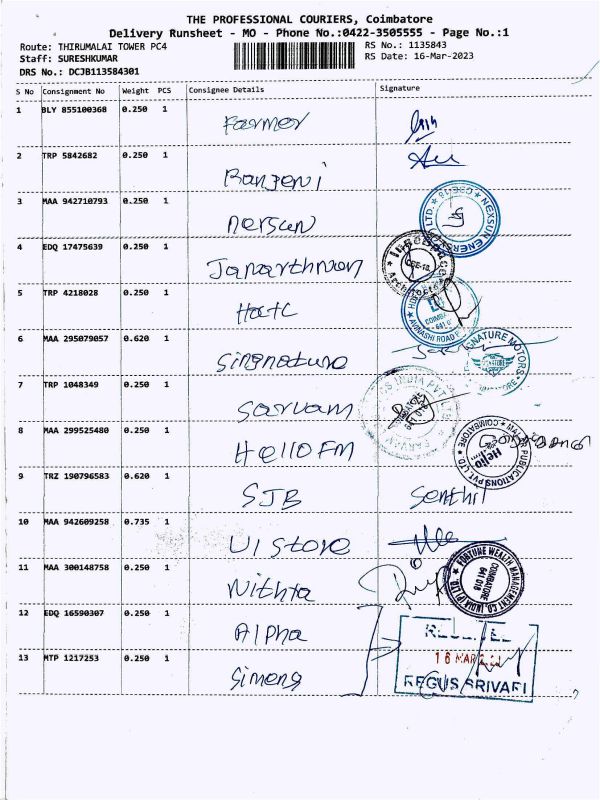 THE PROFESSIONAL COURIERS, Coimbatore
Delivery Runsheet - MO - Phone No.:0422-3505555 - Page No.:1
Route: THIRUMALAI TOWER PC4
RS No.: 1135843
Staff: SURESHKUMAR
RS Date: 16-Mar-2023
DRS No.: DCJB113584301
S No Consignment No Weight PCS Consignee Details Signature
1 BLY 855100368 0.250 1 Farmer
2 TRP 5842682 0.250 1 Ranjeni
3 MAA 942710793 0.250 1 nersun
NEXSUN ENERGY LTD.
4 EDQ 17475639 0.250 1 Janarthnan
5 TRP 4218028 0.250 1 Hatc
AVINASHI ROAD
6 MAA 295079057 0.620 1 Singnature
SIGNATURE MOTORS
7 TRP 1048349 0.250 1 Sarvam
INDIA PVT
8 MAA 299525480 0.250 1 Hello FM
Hello
MALAR PUBLICATIONS PVT. LTD. COIMBATORE
9 TRZ 190796583 0.620 1 SJB Senthil
10 MAA 942609258 0.735 1 UI Store
11 MAA 300148758 0.250 1 Nithta
FORTUNE WEALTH MANAGEMENT CO. INDIA (P) LTD
COIMBATORE
641 018
12 EDQ 16590307 0.250 1 Alpha
RECEIVED
13 MTP 1217253 0.250 1 Simens
16 MAR
REGUS SRIVARI